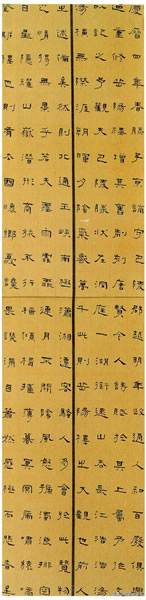 慶曆四年春滕子京謫守巴陵郡越明年政通人和百廢俱
興乃重修岳陽樓增其舊制刻唐賢今人詩賦於其上屬予作文以
記之予觀夫巴陵勝狀在洞庭一湖銜遠山吞長江浩浩湯
湯橫無際涯朝暉夕陰氣象萬千此則岳陽樓之大觀也前人
之述備矣然則北通巫峽南極瀟湘遷客騷人多會於此覽物
之情得無異乎若夫霪雨霏霏連月不開陰風怒號濁浪排空
日星隱耀山岳潛形商旅不行檣傾楫摧薄暮冥冥虎嘯猿啼
登斯樓也則有去國懷鄉憂讒畏譏滿目蕭然感極而悲者矣至